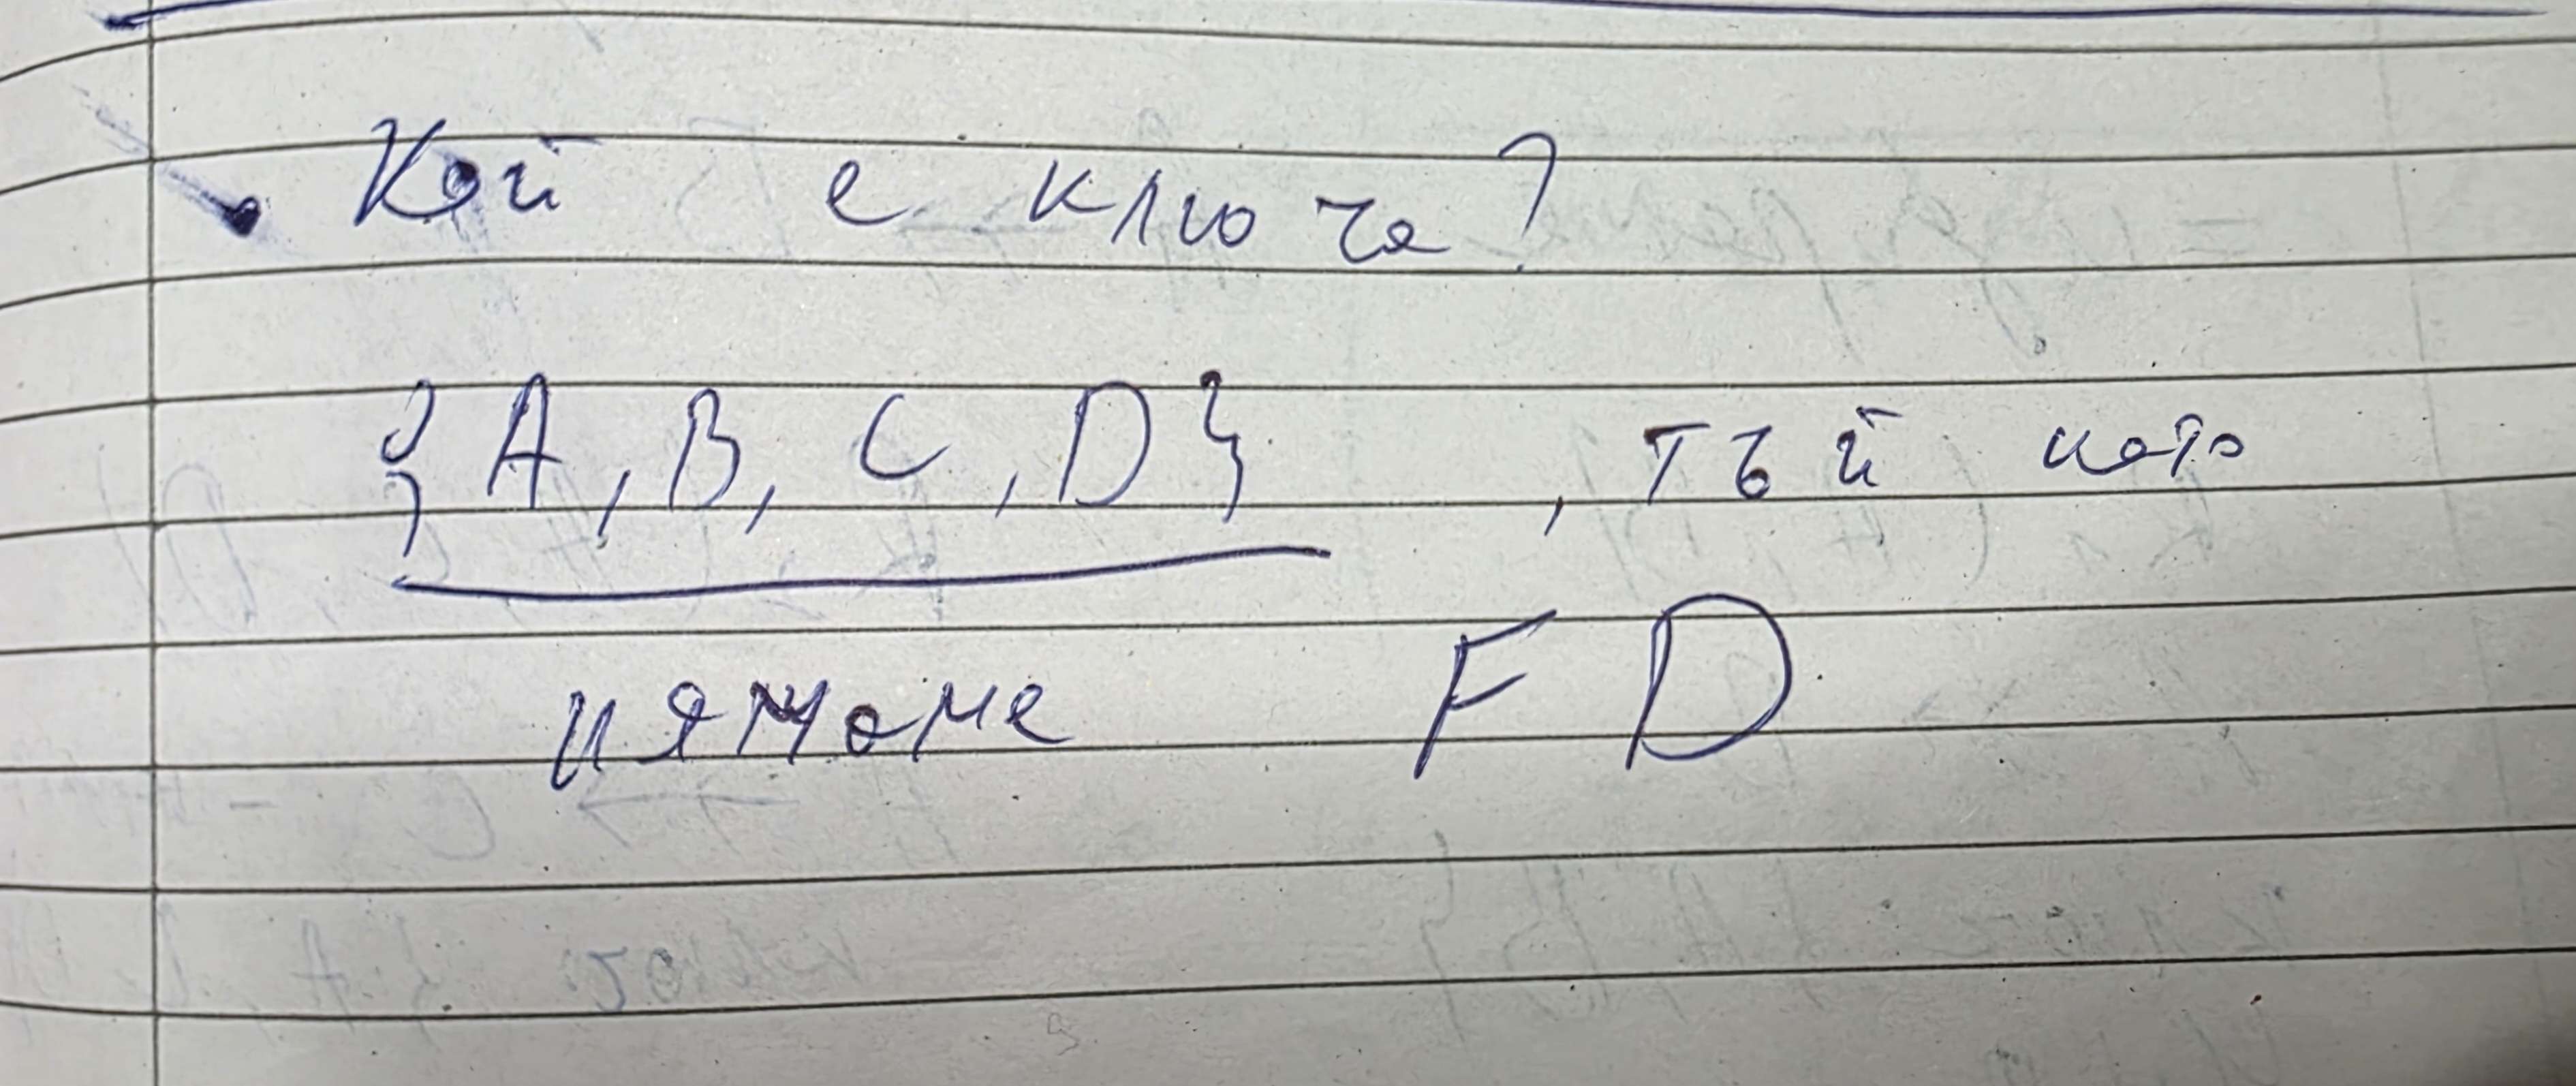 • Кой е ключа?
{A, B, C, D}, тъй като
нямаме FD